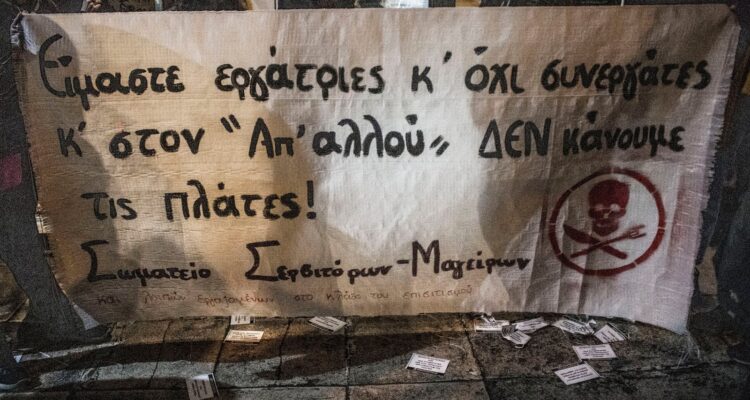 Είμαστε εργάτριες κ' όχι συνεργάτες
κ' στον "Απ'αλλού" ΔΕΝ κάνουμε
τις πλάτες!
Σωματείο Σερβιτόρων-Μαγείρων
και λοιπών εργαζομένων στο κλάδο του επισιτισμού